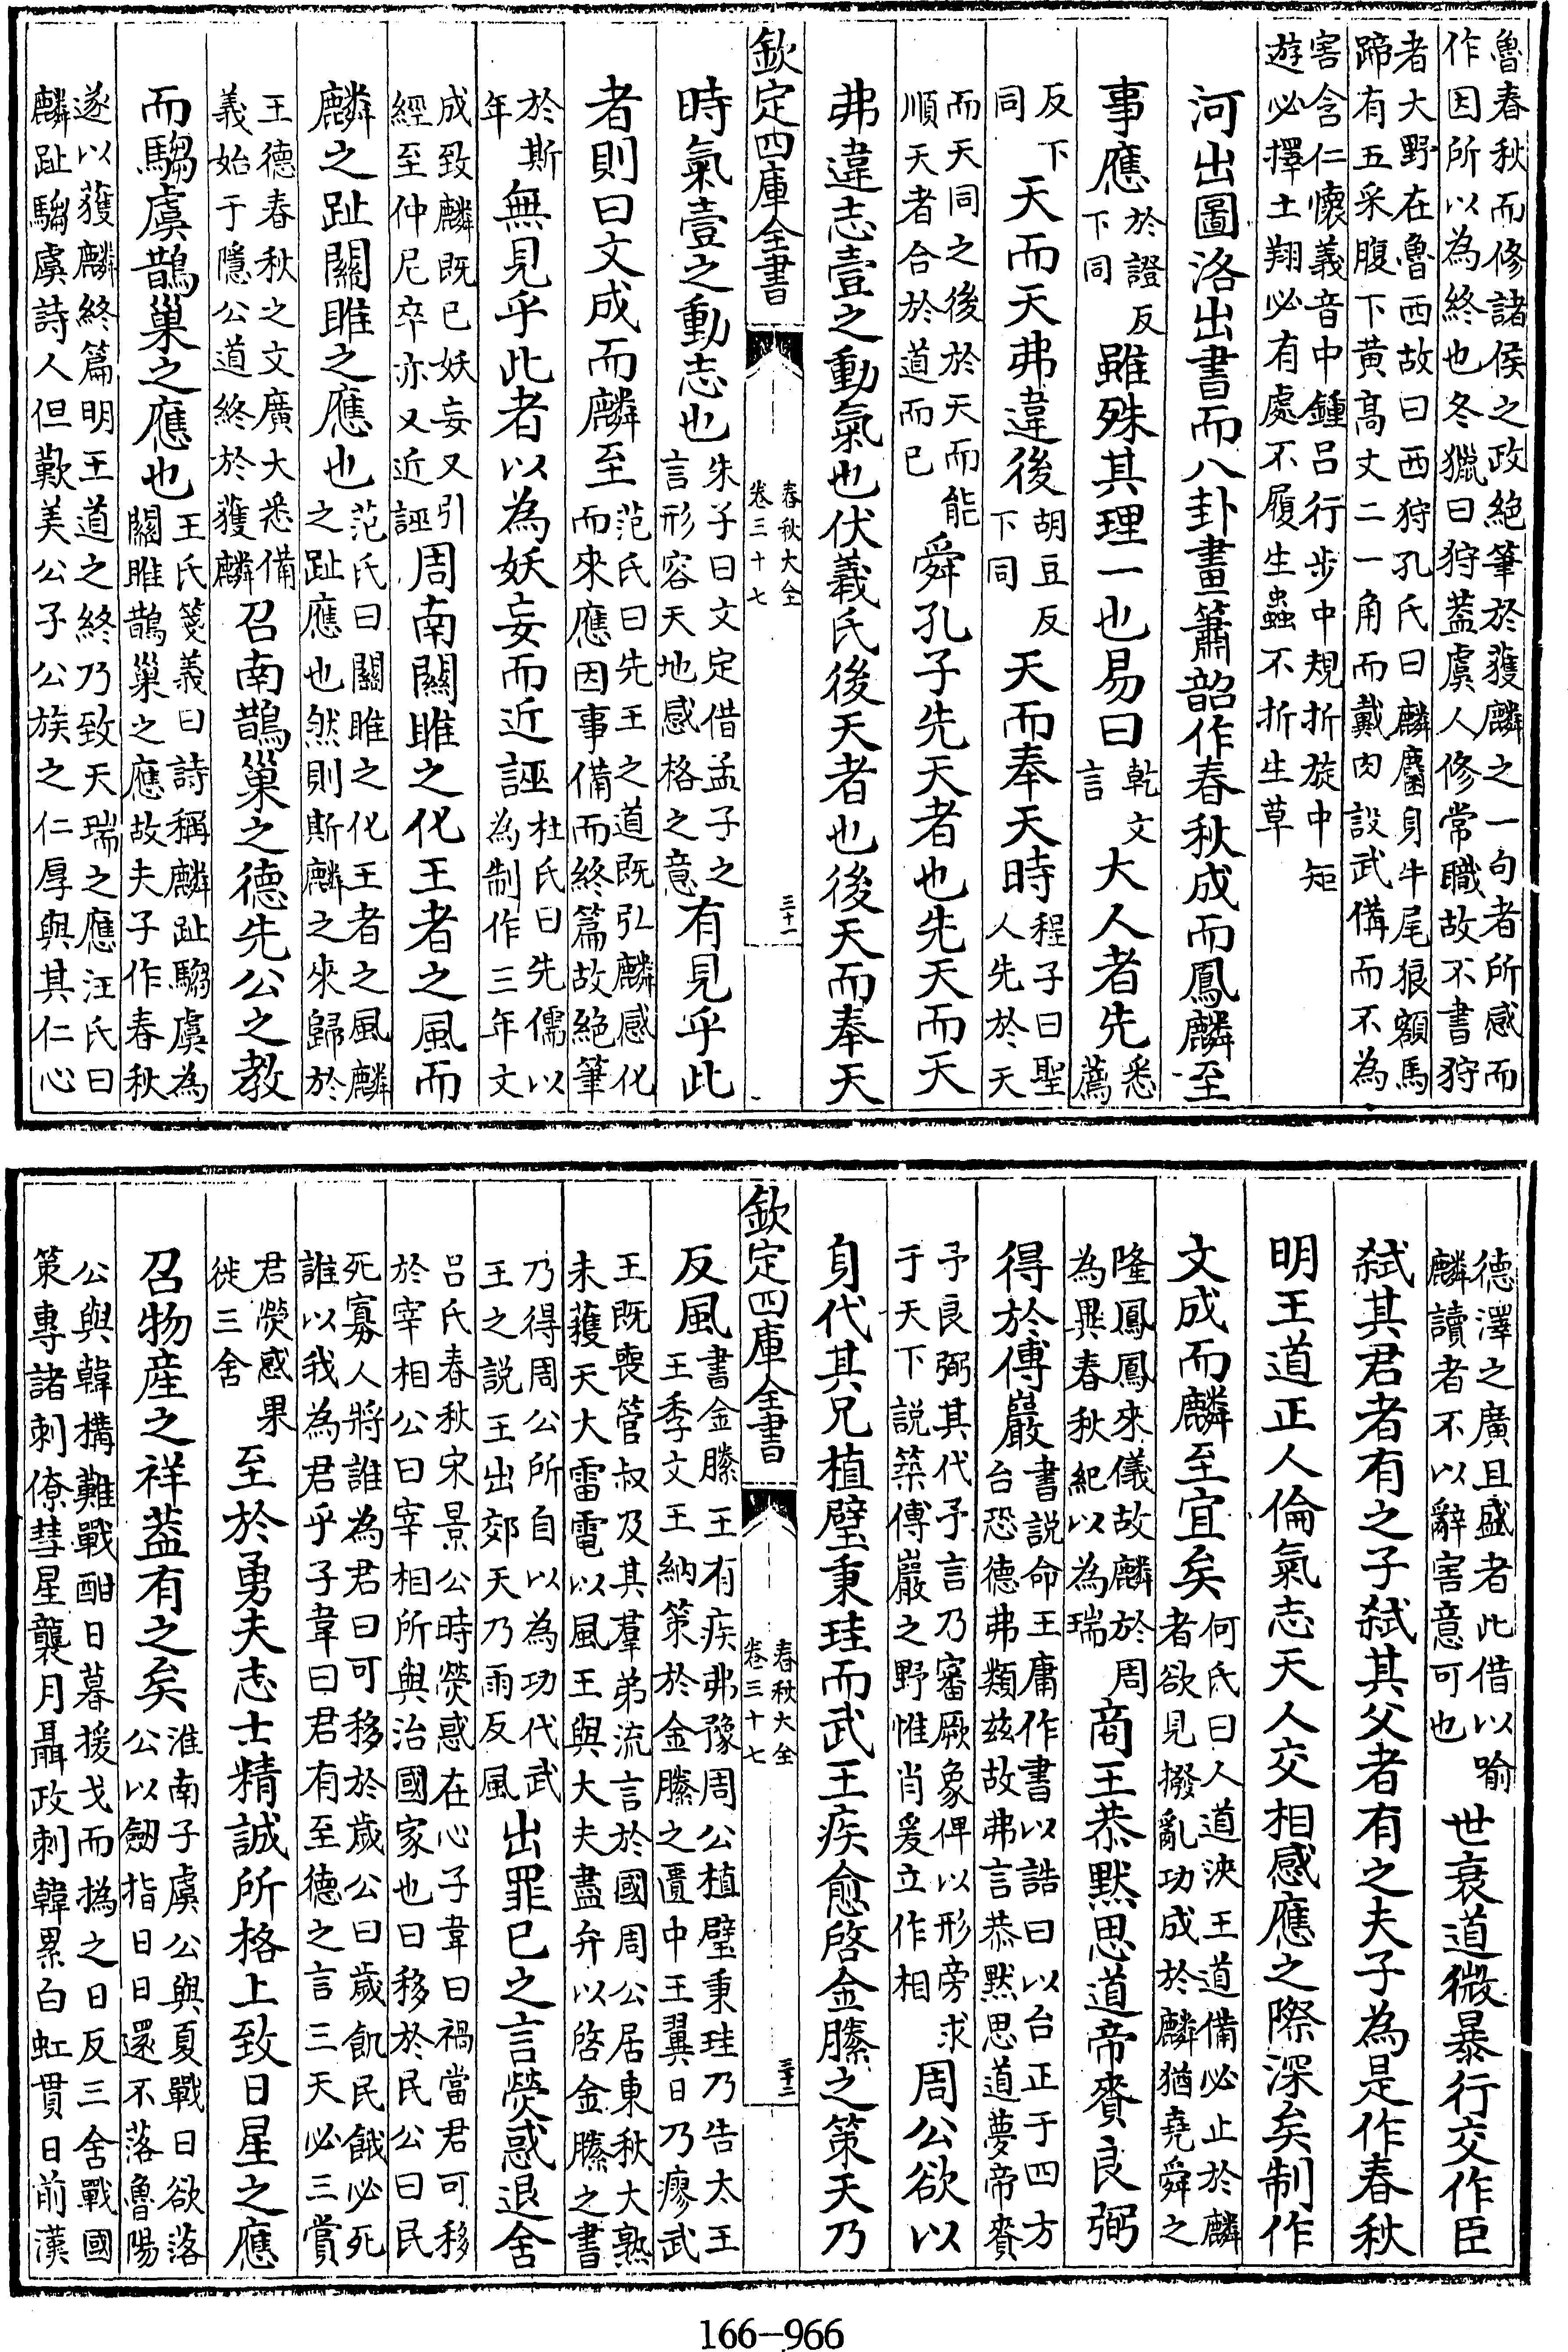 魯春秋而修諸侯之政絕筆於獲麟之一句者所感而
作因所以為終也冬獵曰狩葢虞人修常職故不書狩
者大野在魯西故曰西狩孔氏曰麟麕身牛尾狼額馬
蹄有五采腹下黃高丈二一角而戴肉設武備而不為
害含仁懷義音中鍾呂行步中規折旋中矩
遊必擇土翔必有處不履生蟲不折生草
河出圖洛出書而八卦畫簫韶作春秋成而鳳麟至
事應於證反下同雖殊其理一也易曰乾文言大人者先悉薦
反下同天而天弗違後胡豆反下同天而奉天時程子曰聖人先於天
而天同之後於天而能順天者合於道而已舜孔子先天者也先天而天
弗違志壹之動氣也伏羲氏後天者也後天而奉天
欽定四庫全書 春秋大全 卷三十七 三十一
時氣壹之動志也朱子曰文定借孟子之言形容天地感格之意有見乎此
者則曰文成而麟至范氏曰先王之道既弘麟感化而來應因事備而終篇故絕筆
於斯年無見乎此者以為妖妄而近誣杜氏曰先儒以為制作三年文
成致麟既已妖妄又引經至仲尼卒亦又近誣周南關雎之化王者之風而
麟之趾關雎之應也范氏曰關雎之化王者之風麟之趾應也然則斯麟之來歸於
王德春秋之文廣大悉備義始于隱公道終於獲麟召南鵲巢之德先公之教
而騶虞鵲巢之應也王氏箋義曰詩稱麟趾騶虞為關雎鵲巢之應故夫子作春秋
遂以獲麟終篇明王道之終乃致天瑞之應汪氏曰
麟趾騶虞詩人但歎美公子公族之仁厚與其仁心
德澤之廣且盛者此借以喻
麟讀者不以辭害意可也世衰道微暴行交作臣
弑其君者有之子弑其父者有之夫子為是作春秋
明王道正人倫氣志天人交相感應之際深矣制作
文成而麟至宜矣何氏曰人道浹王道備必止於麟者欲見撥亂功成於麟猶堯舜之
隆鳳鳳來儀故麟於周為異春秋紀以為瑞商王恭默思道帝賚良弼
得於傅巖書說命王庸作書以誥曰以台正于四方台恐德弗類茲故弗言恭默思道夢帝賚
予良弼其代予言乃審厥象俾以形旁求于天下說築傅巖之野惟肖爰立作相周公欲以
身代其兄植璧秉珪而武王疾愈啓金縢之策天乃
欽定四庫全書 春秋大全 卷三十七 三十二
反風書金縢王有疾弗豫周公植璧秉珪乃告太王王季文王納策於金縢之匱中王翼日乃瘳武
王既喪管叔及其羣弟流言於國周公居東秋大熟
未穫天大雷電以風王與大夫盡弁以啓金縢之書
乃得周公所自以為功代武王之說王出郊天乃雨反風出罪已之言熒惑退舍
呂氏春秋宋景公時熒惑在心子韋曰禍當君可移
於宰相公曰宰相所與治國家也曰移於民公曰民
死寡人將誰為君曰可移於歲公曰歲飢民餓必死
誰以我為君乎子韋曰君有至德之言三天必三賞
君熒惑果徙三舍至於勇夫志士精誠所格上致日星之應
召物產之祥葢有之矣淮南子虞公與夏戰日欲落公以劒指日日還不落魯陽
公與韓構難戰酣日暮援戈而撝之日反三舍戰國
策專諸刺僚彗星襲月聶政刺韓累白虹貫日前漢
166-966